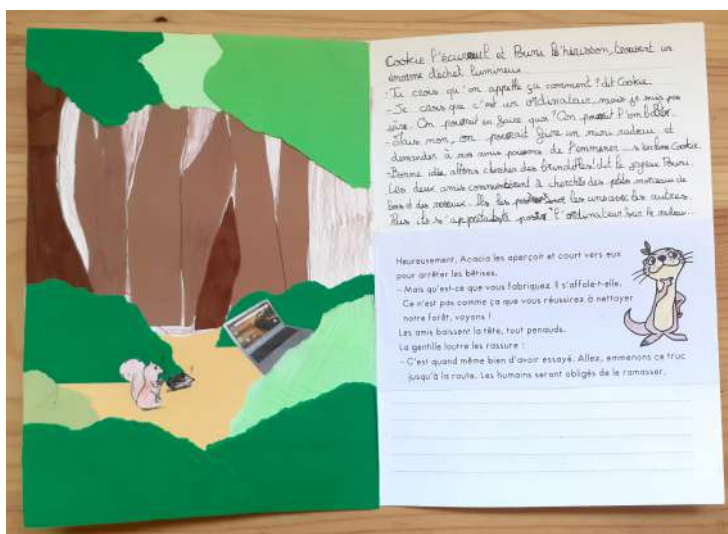 Cookie l'écureuil et Pouni l'hérisson, trouvent un
énorme déchet lumineux...
- Tu crois qu'on appelle ça comment ? dit Cookie.
- Je crois que c'est un ordinateur, mais je suis pas
sûre. On pourrait en faire quoi ? On pourrait l'oublier.
- Mais non, on pourrait faire un mini radeau et
demander à nos amis poissons de l'emmener... s'exclama Cookie.
- Bonne idée, allons chercher des brindilles ! dit le joyeux Pouni.
Les deux amis commencèrent à chercher des petits morceaux de
bois et des roseaux. Ils les les uns avec les autres.
Puis ils s' l'ordinateur sur le radeau...
Heureusement, Acacia les aperçoit et court vers eux
pour arrêter les bêtises.
– Mais qu'est-ce que vous fabriquez !! s'affole-t-elle.
Ce n'est pas comme ça que vous réussirez à nettoyer
notre forêt, voyons !
Les amis baissent la tête, tout penauds.
La gentille loutre les rassure :
– C'est quand même bien d'avoir essayé. Allez, emmenons ce truc
jusqu'à la route. Les humains seront obligés de le ramasser.